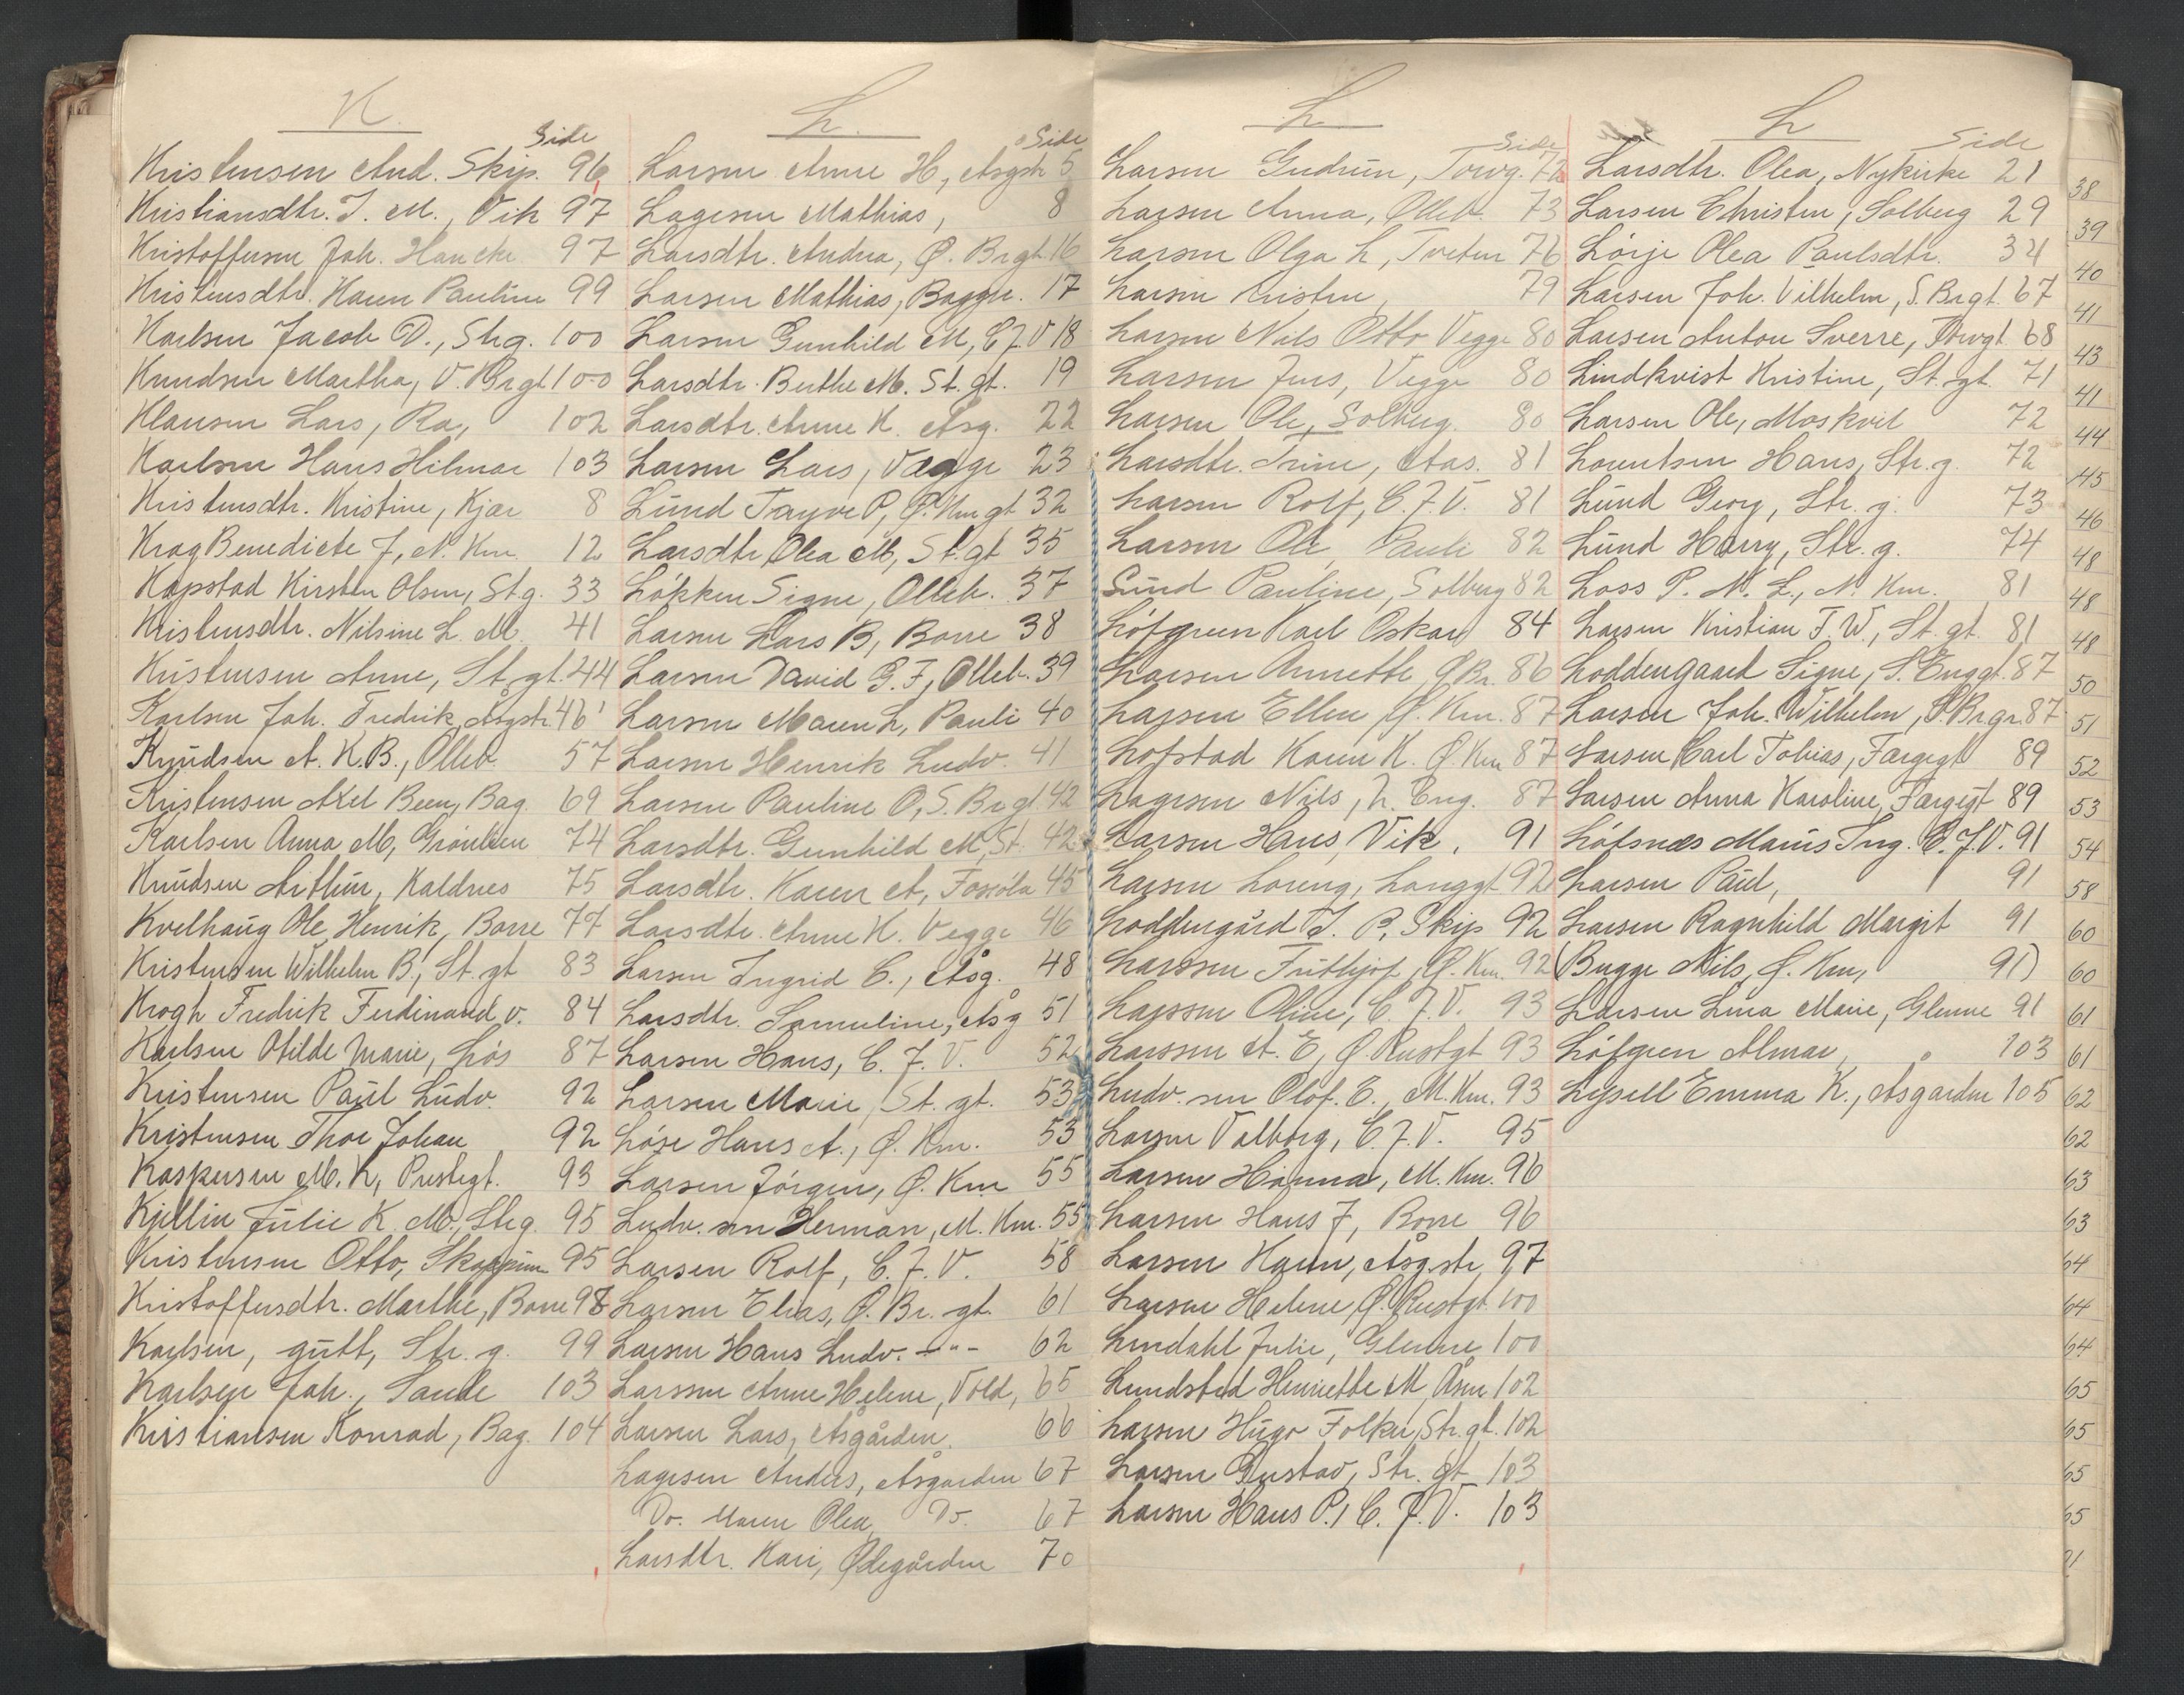 K.
Side
Kristensen And. Skip. 96
Kristiansdtr. J. M., Vik 97
Kristoffersen Joh. Hancke 97
Kristensdtr. Karen Pauline 99
Karlsen Jacob D., Strg. 100
Knudsen Martha, V. Brgt. 100
Klausen Lars, Ra, 102
Karlsen Hans Hilmar 103
Kristensdtr. Kristine, Kjær 8
Krog Benedicte J, N. Km. 12
Kopstad Kirsten Olsen, St.g. 33
Kristensdtr. Nilsine L. M. 41
Kristensen Anne, St. gt. 44
Karlsen Joh. Fredrik, Asgstr. 46
Knudsen A. K. B., Olleb. 57
Kristensen Axel Been, Bag. 69
Karlsen Anna M, Grönlien 74
Knudsen Arthur, Kaldnes 75
Kvelhaug Ole Henrik, Borre 77
Kristensen Wilhelm B., St. gt 83
Krogh Fredrik Ferdinand v. 84
Karlsen Otilde Marie, Lös 87
Kristensen Paul Ludv. 92
Kristensen Thor Johan 92
Kaspersen M. K, Prestegt. 93
Kjellin Julie K. M., Strg. 95
Kristensen Otto, Skoppum 95
Kristoffersdtr. Marthe, Borre 98
Karlsen, gutt, Str. g. 99
Karlsen Joh., Sande 103
Kristiansen Konrad, Bag. 104
L.
Side
Larsen Anne H, Asgstr 5
Lagesen Mathias, 8
Larsdtr. Andrea, Ø. Brgt. 16
Larsen Mathias, Bagger. 17
Larsen Gunhild M, C.J.V 18
Larsdtr. Berthe M. St. gt. 19
Larsdtr. Anne K. Asg. 22
Larsen Lars, Vægge 23
Lund Trygve P, Ø. Km gt 32
Larsdtr Olea M, St. gt 35
Løkken Signe, Olleb. 37
Larsen Lars B, Borre 38
Larsen David G. F, Olleb. 39
Larsen Maren L, Pauli 40
Larsen Henrik Ludv. 41
Larsen Pauline O, S. Brgt. 42
Larsdtr. Gunhild M, St. 42
Larsdtr. Karen A, 45
Larsdtr. Anne K. Vegge 46
Larsen Ingrid C., Åsg. 48
Larsdtr. Samueline, Åsg 51
Larsen Hans, C. J. V. 52
Larsen Marie, St. gt. 53
Löse Hans A., Ø. Km. 53
Larsen Jörgen, Ø. Km 55
Ludv. sen Herman, M. Km. 55
Larsen Rolf, C. J. V. 58
Larsen Elias, Ø. Br. gt. 61
Larsen Hans Ludv. -"- 62
Larssen Anne Helene, Vold, 65
Larsen Lars, Åsgården. 66
Lagesen Anders, Asgarden 67
Do. Maren Olea, Do. 67
Larsdtr. Kari, Ødegården 70
L
Side
Larsen Gudrun, Torvg. 72
Larsen Anna, Olleb. 73
Larsen Olga L, Tveten 76
Larsen Kristen, 79
Larsen Nils Otto Vegge 80
Larsen Jens, Vegge 80
Larsen Ole, Solberg. 80
Larsdtr. Trine, Aas. 81
Larsen Rolf, C. J. V. 81
Larsen Ole Pauli 82
Lund Pauline, Solberg 82
Löfgren Karl Oskar 84
Larsen Annette Ø Br. 86
Larsen Ellen Ø. Km. 87
Lofstad Karen K. Ø. Km 87
Lagesen Nils, N. Eng. 87
Larsen Hans, Vik, 91
Larsen Loreng, Langgt 92
Loddengård J. P, Skip 92
Larssen Frithjof, Ø. Km. 92
Larssen Oline, C. J. V. 93
Larssen A. E, Ø. Rustgt 93
Ludv. sen Olof. E., M. Km. 93
Larsen Valborg, C. J. V. 95
Larsen Hanna, M. Km. 96
Larsen Hans J, Borre 96
Larsen Karen, Åsgstr. 97
Larsen Helene Ø. Rustgt. 100
Lindahl Julie, Glenne 100
Lundstad Henriette M, Åsen 102
Larsen Hugo Folke, Str. gt. 102
Larsen Gustav, Str. gt 103
Larsen Hans P., C. J. V. 103
L
Side
Larsdtr. Olea, Nykirke 21
Larsen Christen, Solberg 29
Lörje Olea Paulsdtr. 34
Larsen Joh. Vilhelm, S. Brgt. 67
Larsen Anton Sverre, Torvgt. 68
Lindkvist Kristine, St. gt. 71
Larsen Ole, Moskvil 72
Lorentsen Hans, Str. g. 72
Lund Georg, Str. g. 73
Lund Harry, Str. g. 74
Loss P. N. L., N. Km. 81
Larsen Kristian F. W., St. gt. 81
Loddengaard Signe, S. Enggt. 87
Larsen Joh. Wilhelm, S. Br.gr. 87
Larsen Carl Tobias, Fargegt 89
Larsen Anna Karoline, Fargegt 89
Löfsnæs Marius Ing. C. J. V. 91
Larsen Paul, 91
Larsen Ragnhild Margit 91
(Bugge Nils, Ø. Km, 91)
Larsen Lina Marie, Glenne 91
Löfgren Almar, 103
Lysell Emma K., Asgarden 105
38
39
40
41
43
41
44
45
46
48
48
48
50
51
52
53
54
58
60
60
61
61
62
62
63
63
64
64
64
65
65
65
65